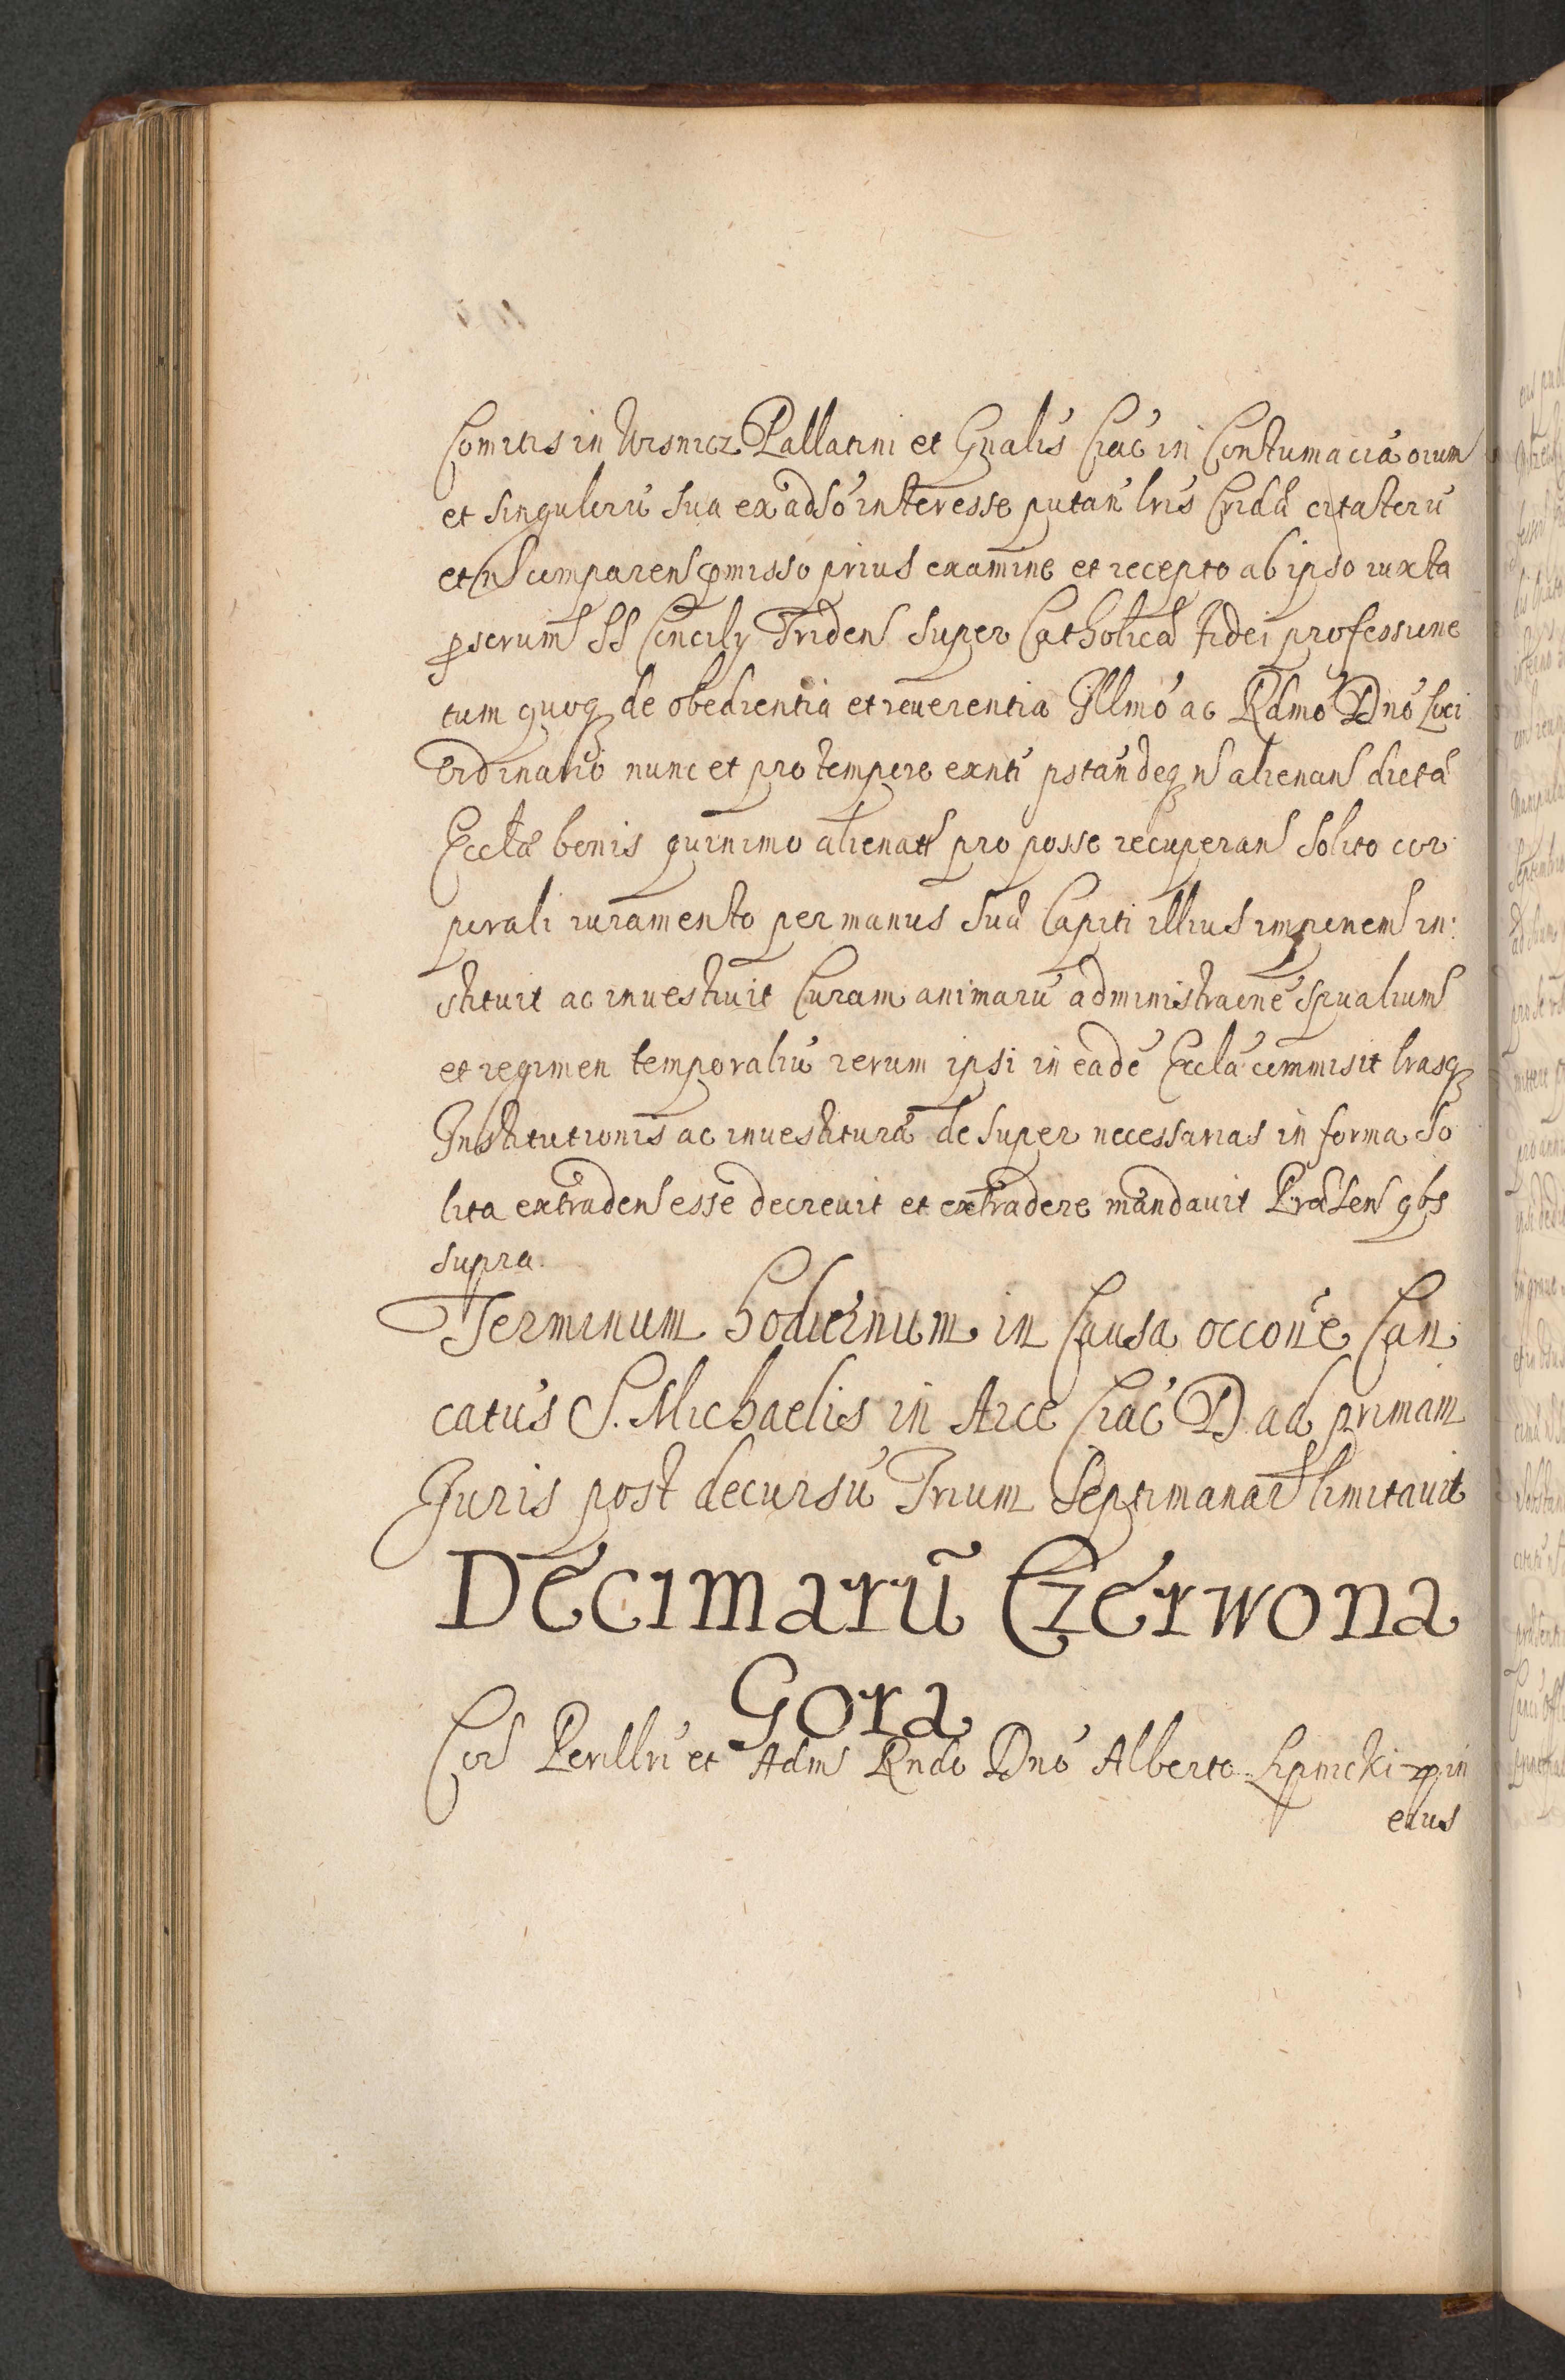 Comitis in Wisnicz Pallatini et Gnalis Crac in Contumacia oium
et singuloru sua ex adso interesse putan lris Crida citatoru
et n comparen pmisso prius examine et recepto ab ipso iuxta
pscrum SS Concily Triden super Catholica fidei professione
tum quoq de obedientia et reuerentia Illmo ac Rdmo Dno Loci
Ordinario nunc et pro tempore exnti pstan deq n alienan dicta
Eccla bonis quinimo alienatt pro posse recuperan solito cor
porali iuramento per manus sua Capiti illius imponem in:
stituit ac inuestiuit Curam animaru administracne spualium
et regimen temporaliu rerum ipsi in eade Eccla commisit lrasq
Institutionis ac inuestitura de super necessarias in forma so
lita extraden esse decreuit et extradere mandauit Præsen qbs
supra.
Terminum hodiernum in Causa occone Can
catus S. Michaelis in Arce Crac D ad primam
Juris post decursu Trium Septimanar limitauit
Decimarũ Czerwona
Gora
Cor Perillri et Adm Rndo Dno Alberto Lipnicki in
eius